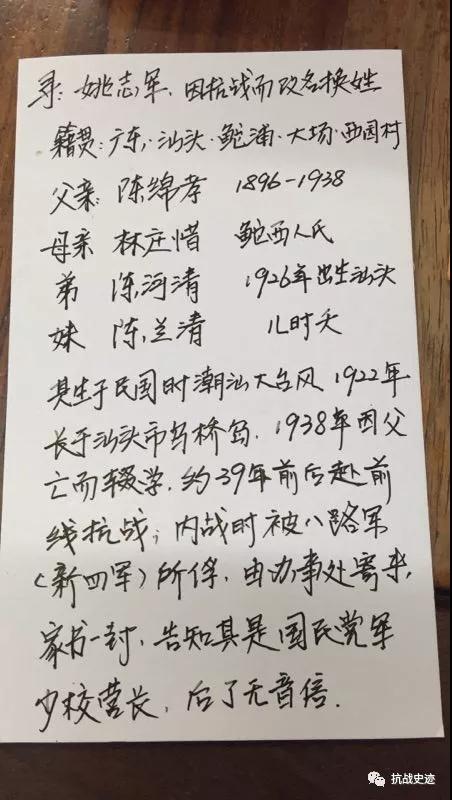 寻: 姚志军, 因抗战而改名换姓
籍贯: 广东·汕头·鮀浦·大场·西园村
父亲: 陈绵孝 1896-1938
母亲 林庄惜 鮀西人氏
弟 陈河清 1926年出生汕头
妹 陈兰清 儿时夭
其生于民国时潮汕大台风 1922年
长于汕头市乌桥岛. 1938年因父
亡而辍学. 约39年前后赴前
线抗战; 内战时被八路军
(新四军)所俘, 由办事处寄来,
家书一封, 告知其是国民党军
少校营长, 后了无音信.
抗战史迹